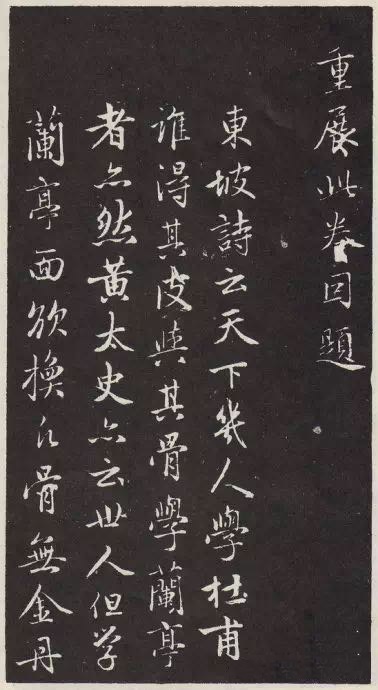 重展此卷因題
東坡詩云天下幾人學杜甫
誰得其皮與其骨學蘭亭
者亦然黄太史亦云世人但学
蘭亭面欲換凡骨無金丹